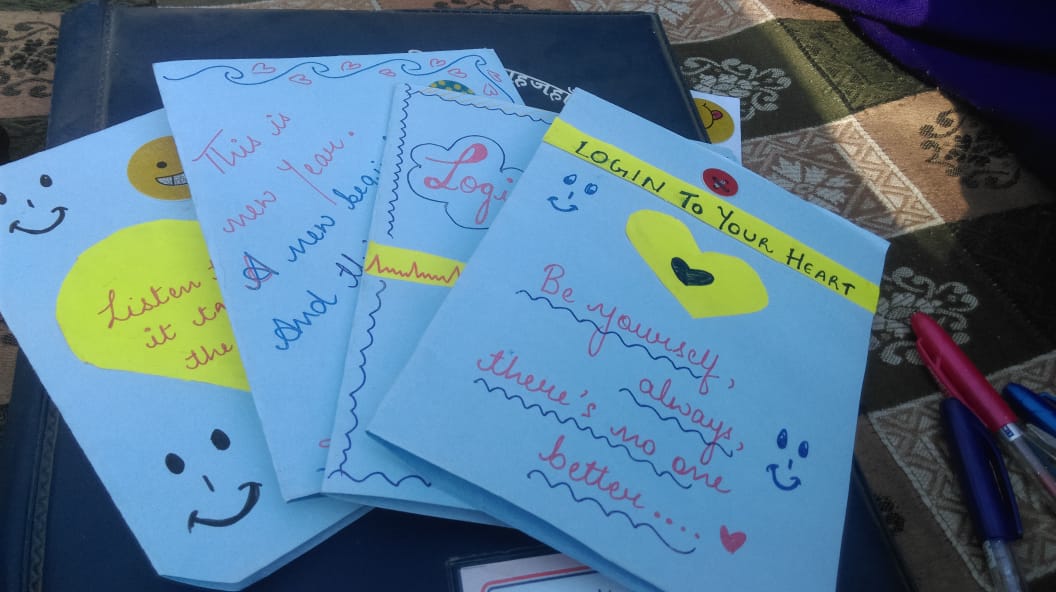 Listen
it ta
the
This is
new Year.
A new begi
And th
Logi
LOGIN TO YOUR HEART
Be yourself,
always,
there's no one
better....